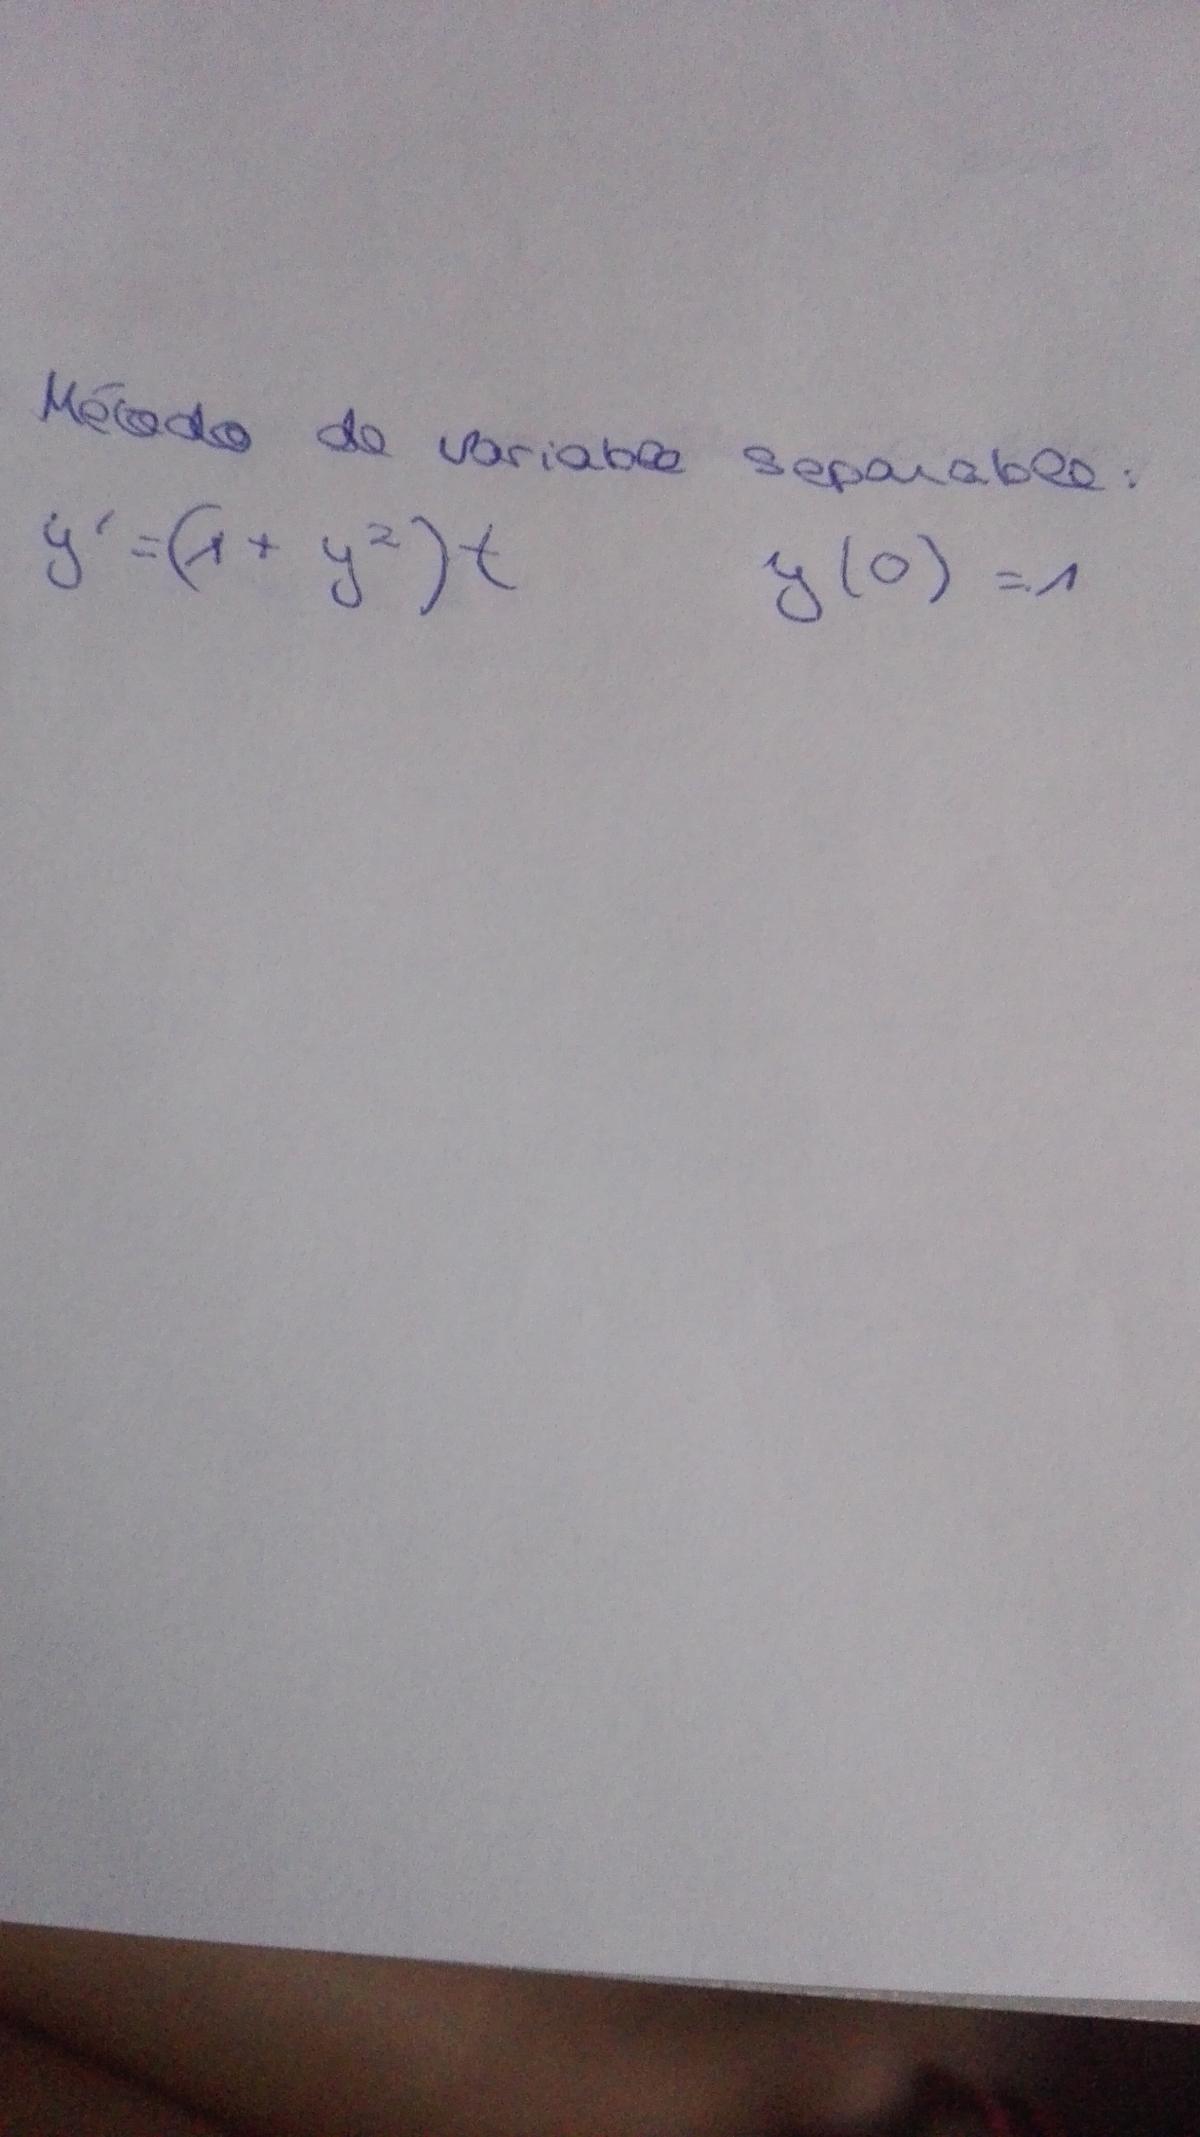 Método de variable separable:
y' = (1 + y²) t y(0) = 1